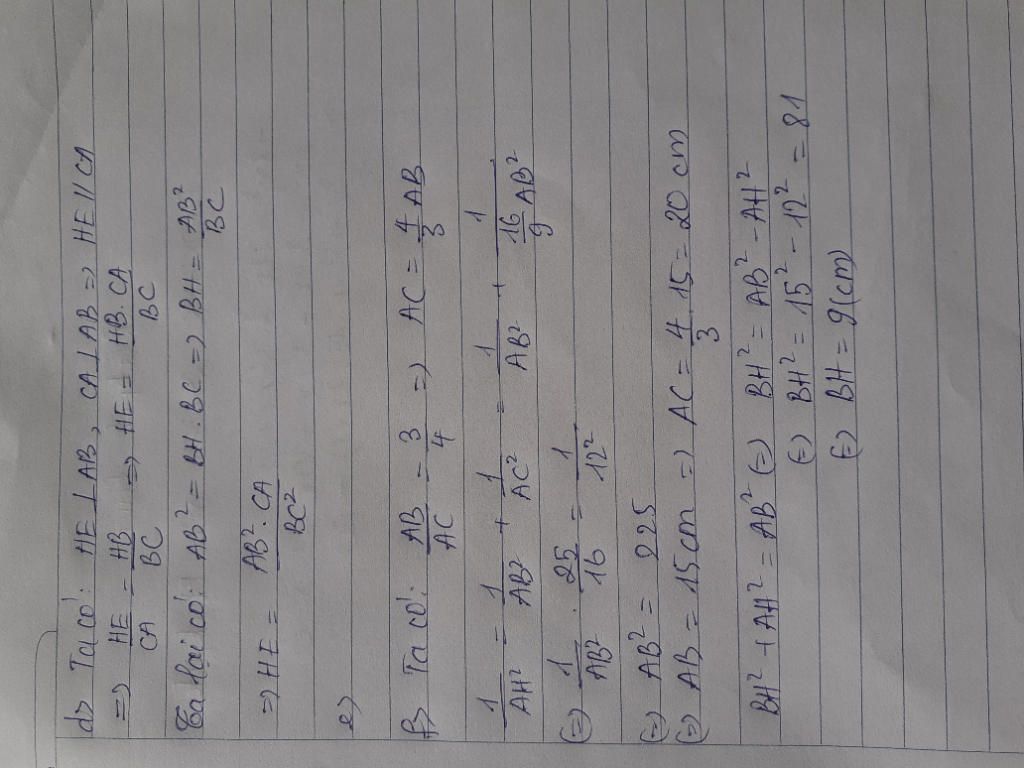 d> Ta có: HE ⊥ AB, CA ⊥ AB => HE // CA
=> HE/CA = HB/BC => HE = HB.CA/BC
Ta lại có: AB² = BH.BC => BH = AB²/BC
=> HE = AB².CA/BC²
e>
f> Ta có: AB/AC = 3/4 => AC = 4/3 AB
1/AH² = 1/AB² + 1/AC² = 1/AB² + 1/(16/9 AB²)
(=) 1/AB² . 25/16 = 1/12²
(=) AB² = 225
(=) AB = 15cm => AC = 4/3 . 15 = 20 cm
BH² + AH² = AB² (=) BH² = AB² - AH²
(=) BH² = 15² - 12² = 81
(=) BH = 9(cm)